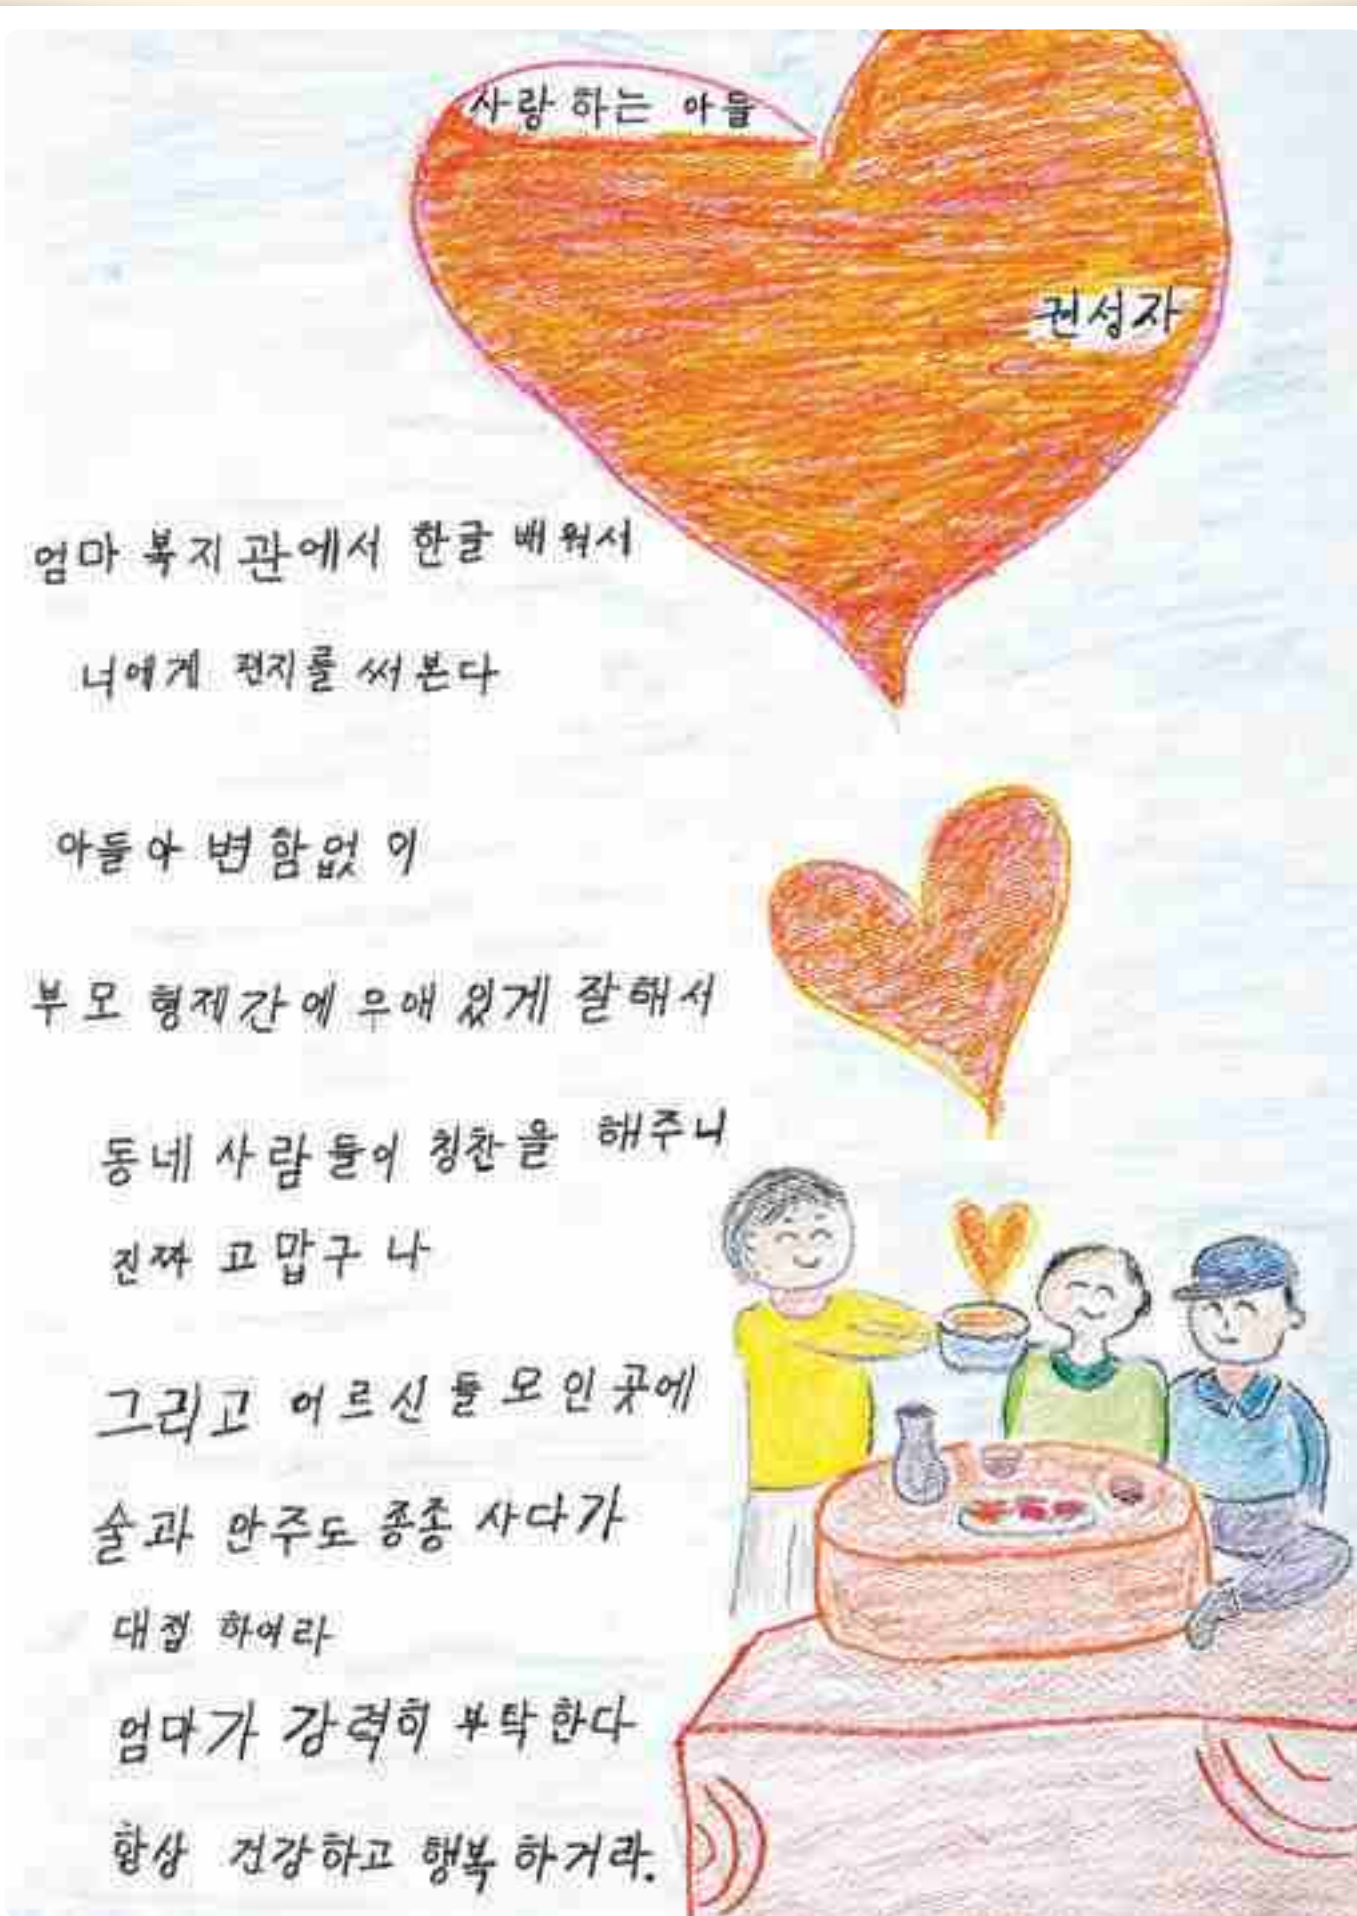 사랑하는 아들
권성자
엄마 복지관에서 한글 배워서
너에게 편지를 써본다
아들아 변함없이
부모 형제간에 우애 있게 잘해서
동네 사람들이 칭찬을 해주니
진짜 고맙구나
그리고 어르신들 모인곳에
술과 안주도 종종 사다가
대접 하여라
엄마가 강력히 부탁한다
항상 건강하고 행복 하거라.